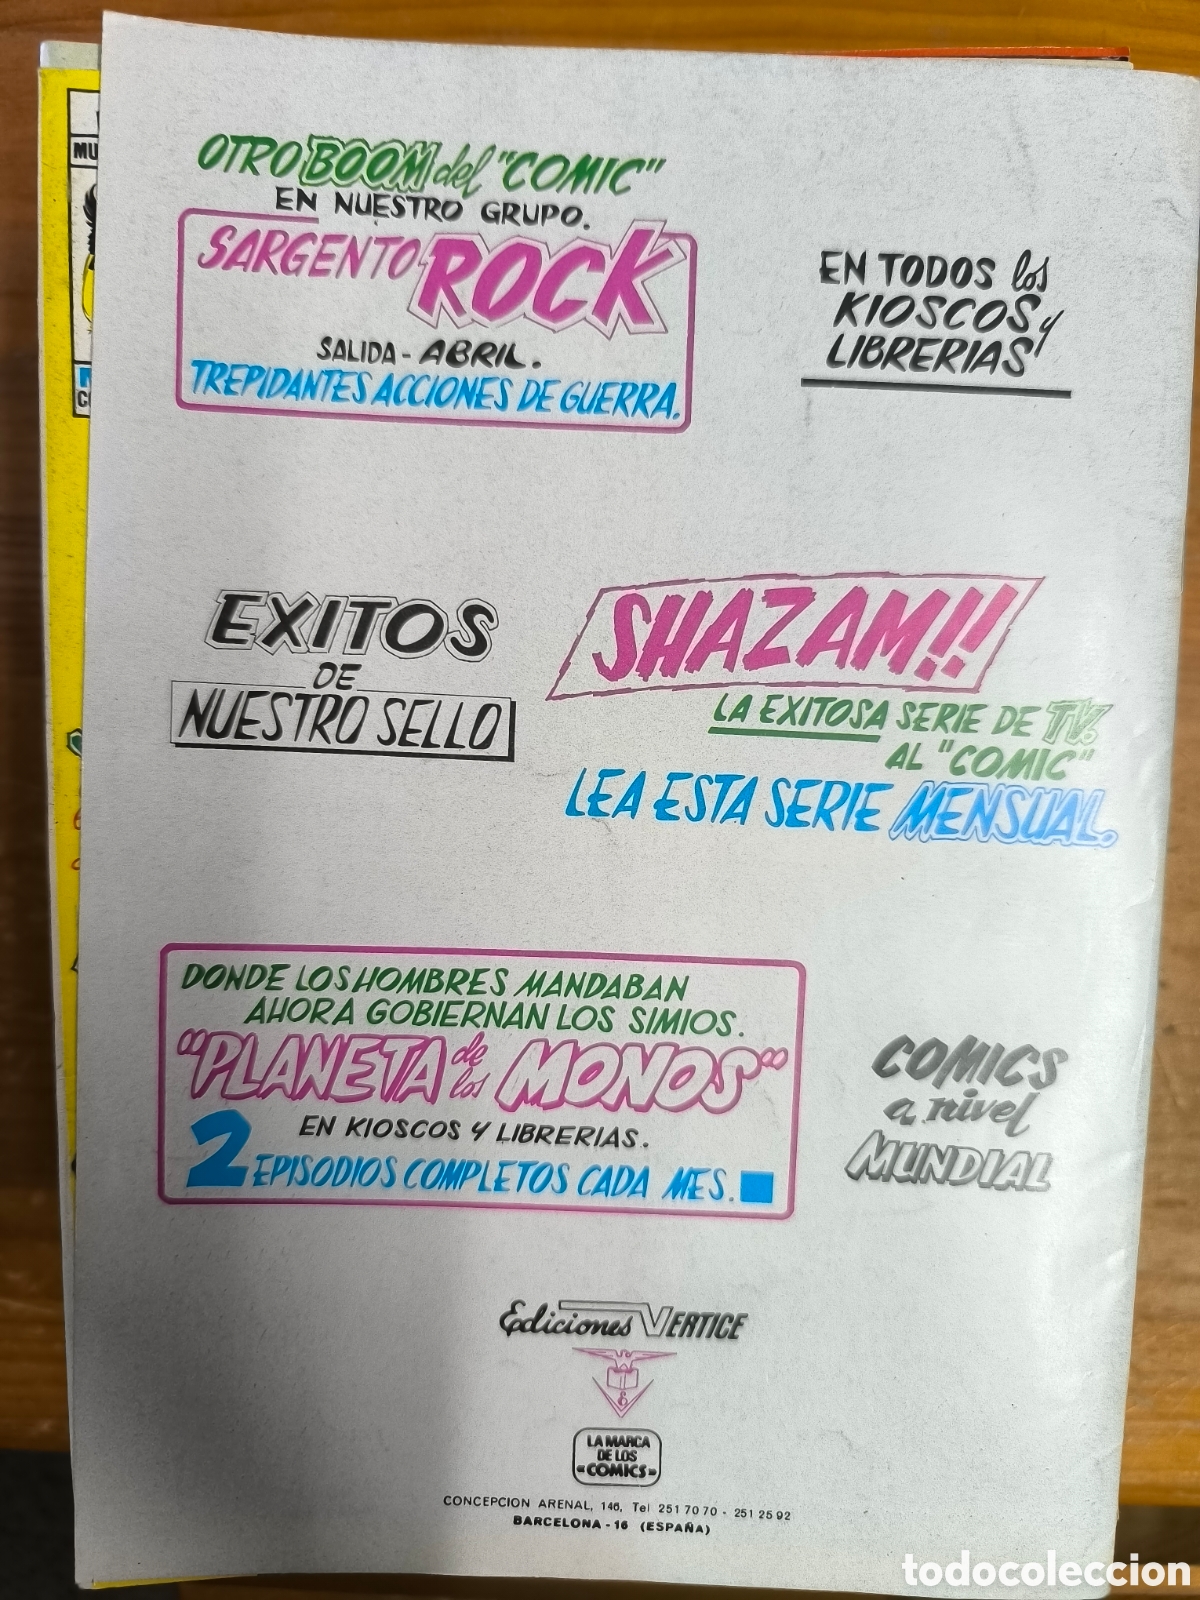 OTRO BOOM del "COMIC"
EN NUESTRO GRUPO.
SARGENTO ROCK
SALIDA - ABRIL.
TREPIDANTES ACCIONES DE GUERRA.
EN TODOS los
KIOSCOS y
LIBRERIAS
EXITOS
DE
NUESTRO SELLO
SHAZAM!!
LA EXITOSA SERIE DE TV.
AL "COMIC"
LEA ESTA SERIE MENSUAL.
DONDE LOS HOMBRES MANDABAN
AHORA GOBIERNAN LOS SIMIOS.
"PLANETA de los MONOS"
EN KIOSCOS Y LIBRERIAS.
2 EPISODIOS COMPLETOS CADA MES.
COMICS
a nivel
MUNDIAL
Ediciones VERTICE
LA MARCA
DE LOS
«COMICS»
CONCEPCION ARENAL, 146, Tel 251 70 70 - 251 25 92
BARCELONA - 16 (ESPAÑA)
MU
todocoleccion